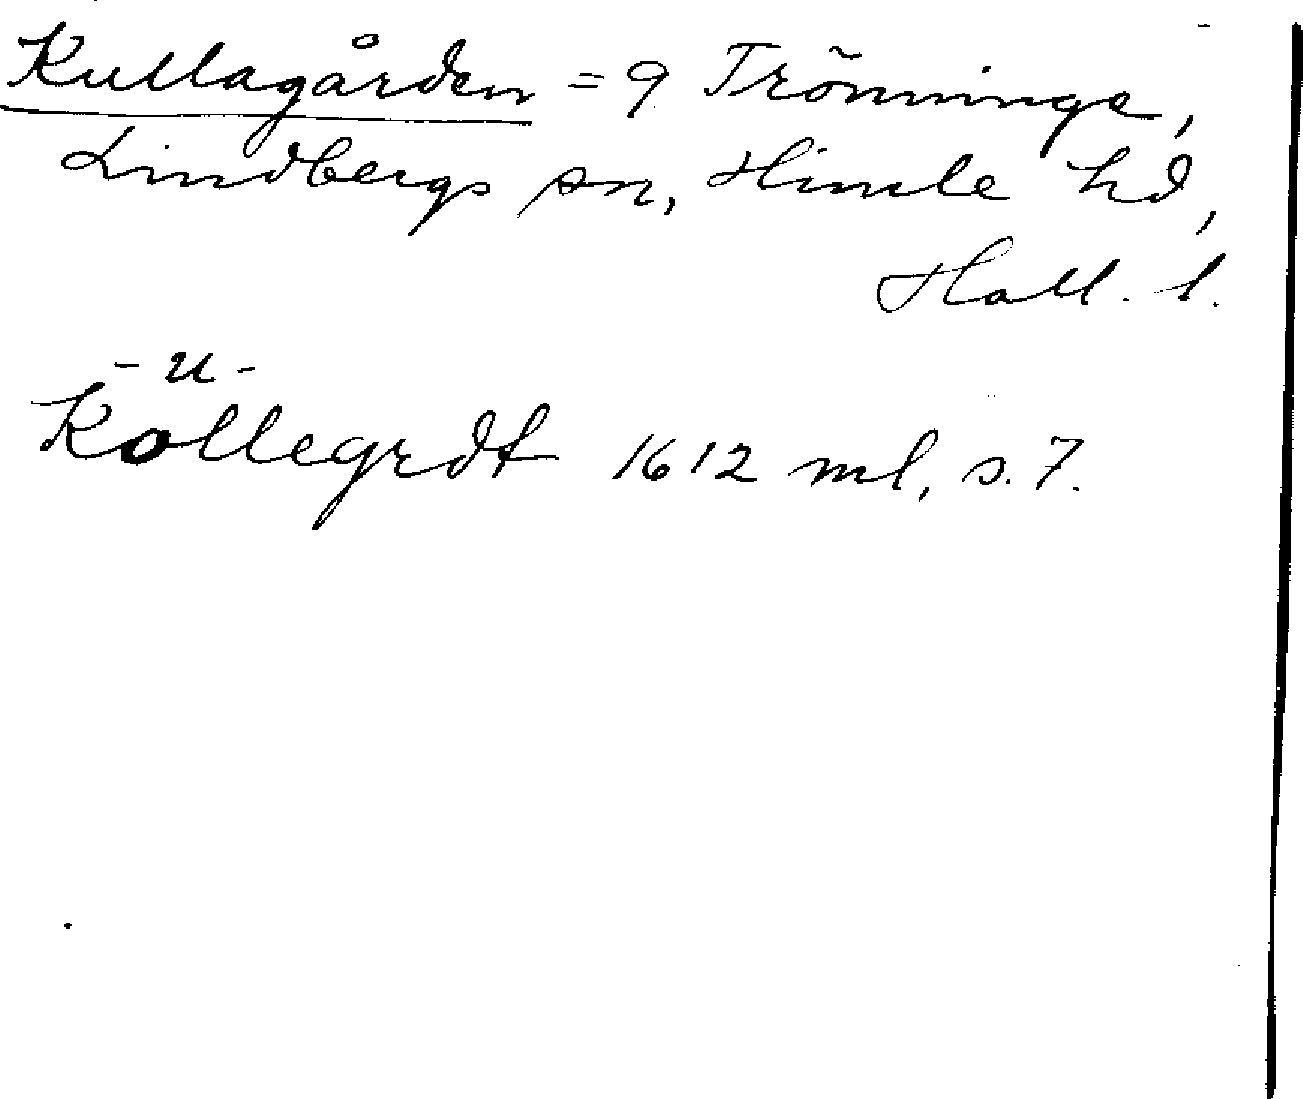 Kullagården = 9 Trönninge,
Lindbergs sn, Himle hd,
Hall. l.
- u -
Kollegrdt 1612 ml, s. 7.